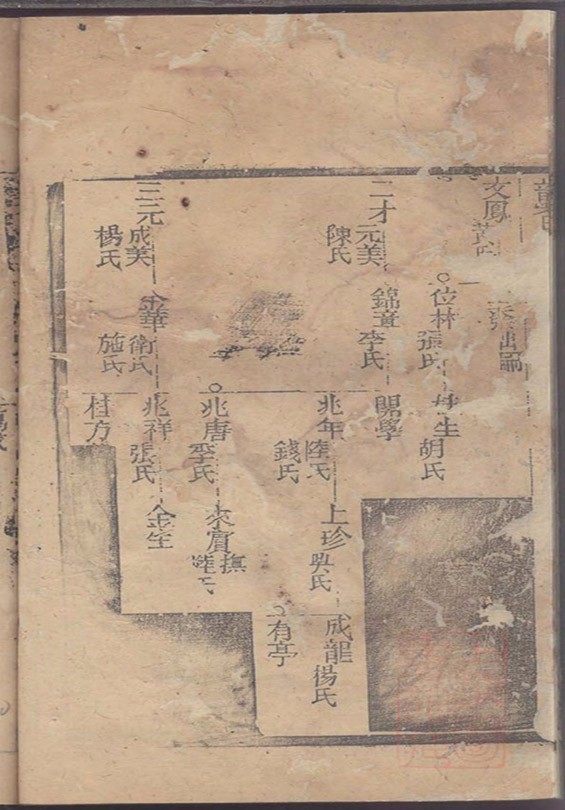 文鳳
二才
元美
陳氏
三元
成美
楊氏
位林
張氏
錦章
李氏
金華
衛氏
施氏
生
胡氏
賜學
兆年
陸氏
錢氏
兆唐
李氏
兆祥
張氏
桂方
上珍
吳氏
來賓
撫
陸氏
金宝
成龍
楊氏
有亭